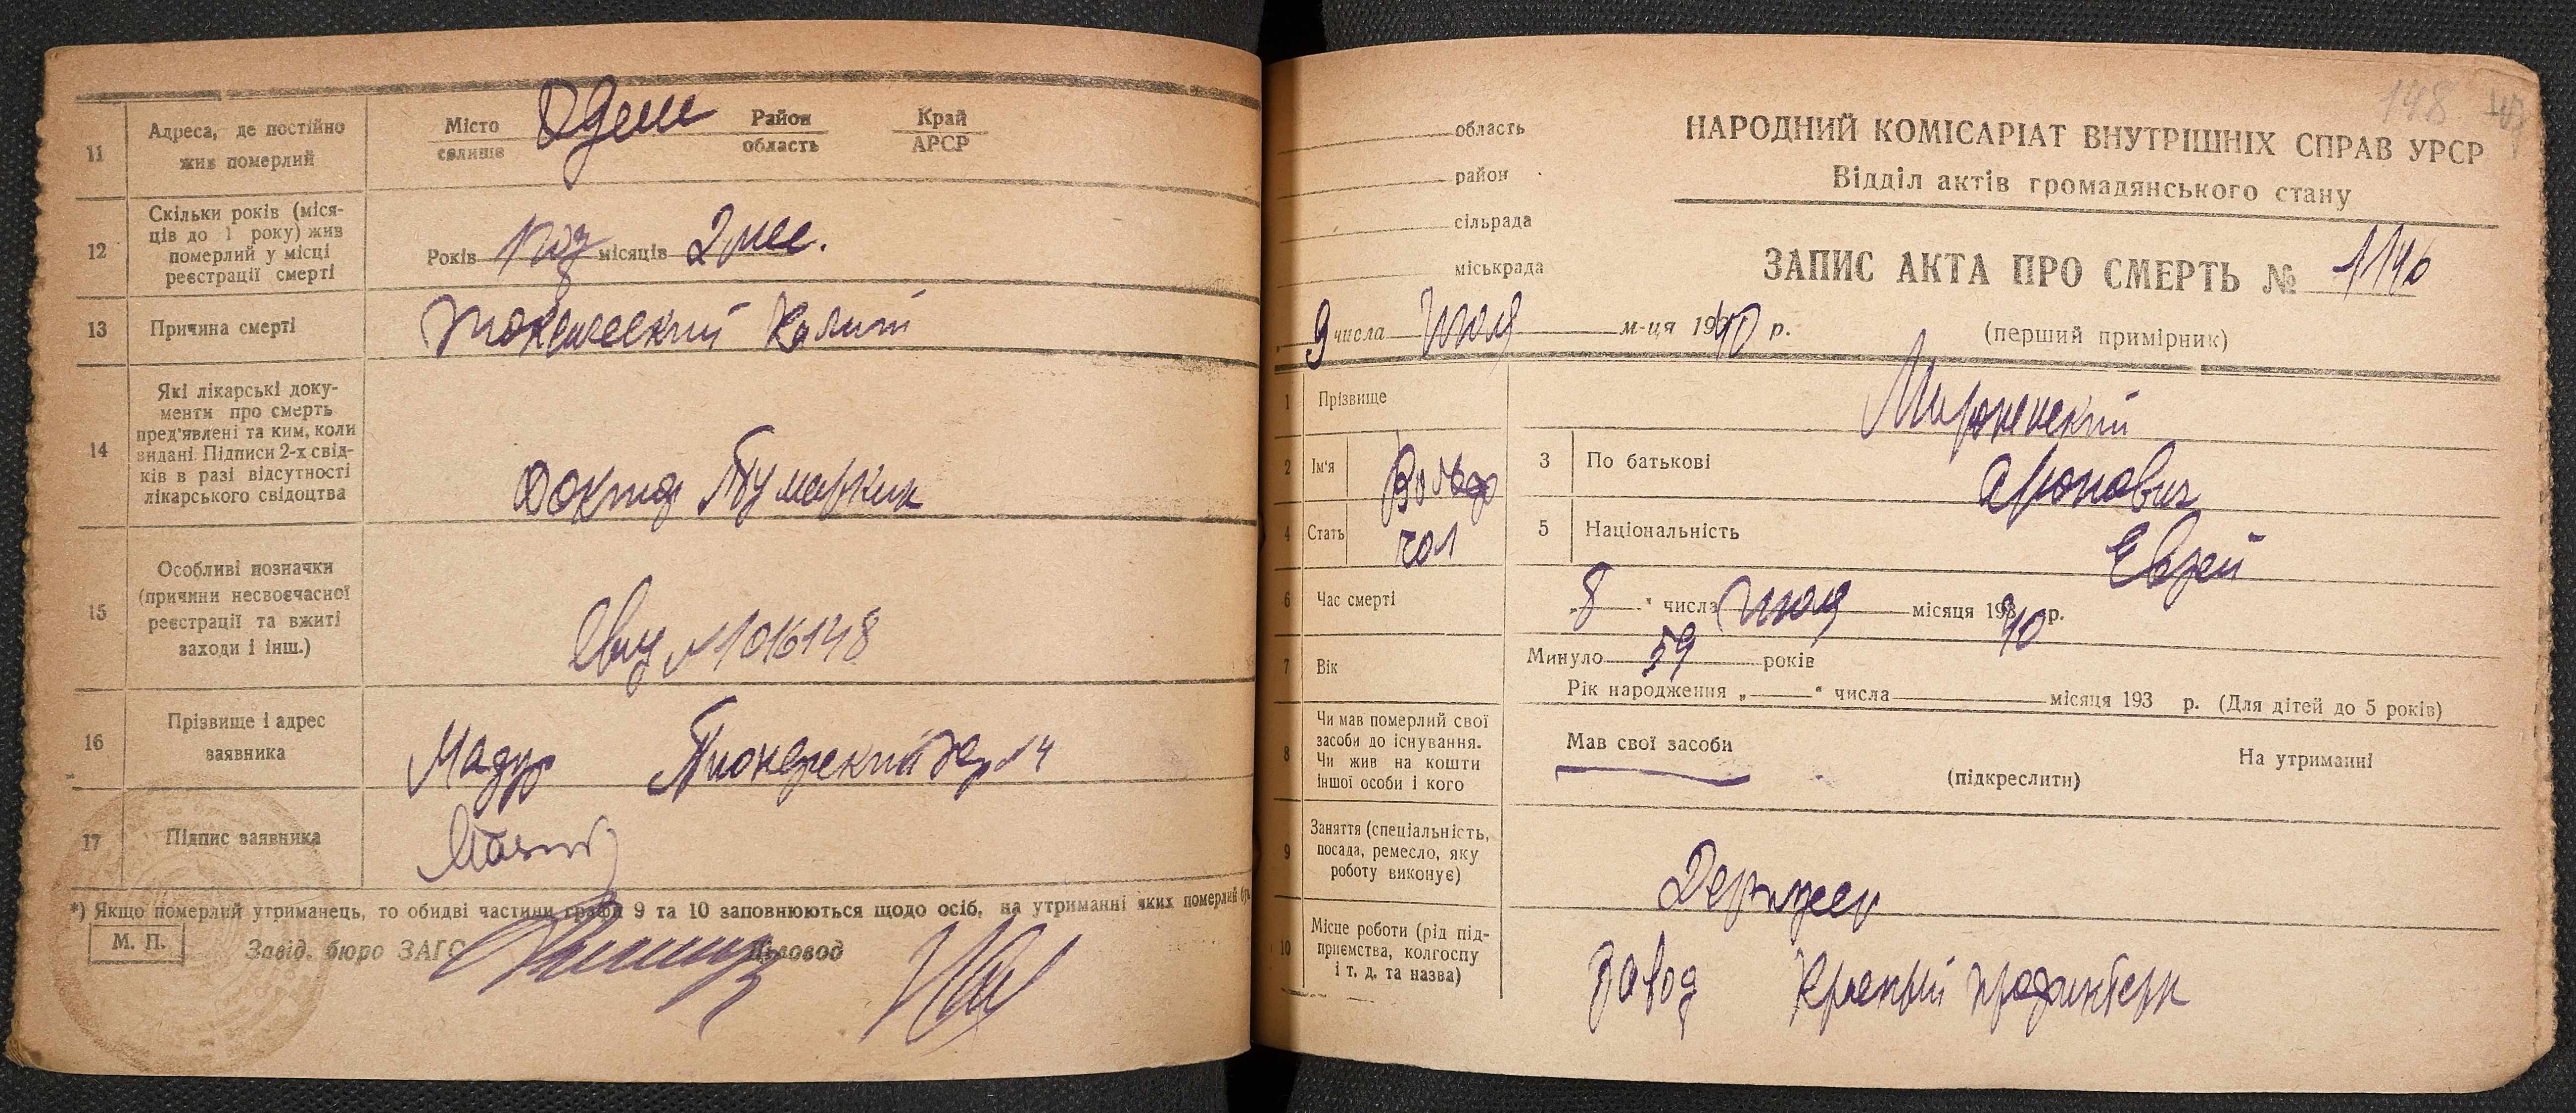 11
Адреса, де постійно
жив померлий
Місто
селище
Одесс
Район
область
Край
АРСР
12
Скільки років (міся-
ців до 1 року) жив
померлий у місці
реєстрації смерті
Років 1 год місяців 2 мес.
13
Причина смерті
Токсический Колит
14
Які лікарські доку-
менти про смерть
пред'явлені та ким, коли
видані. Підписи 2-х свід-
ків в разі відсутності
лікарського свідоцтва
Доктор Тумаркин
15
Особливі позначки
(причини несвоєчасної
реєстрації та вжиті
заходи і інш.)
№ 1016148
16
Прізвище і адрес
заявника
Мадур Пионерский 14
17
Підпис заявника
*) Якщо померлий утриманець, то обидві частини графи 9 та 10 заповнюються щодо осіб, на утриманні яких померлий
М. П.
Завід. бюро ЗАГС
Діловод
148
НАРОДНИЙ КОМІСАРІАТ ВНУТРІШНІХ СПРАВ УРСР
Відділ актів громадянського стану
область
район
сільрада
міськрада
ЗАПИС АКТА ПРО СМЕРТЬ № 1146
(перший примірник)
9 числа Июля м-ця 1940 р.
1
Прізвище
2
Ім'я
3
По батькові
Аронович
4
Стать
чол
5
Національність
Еврей
6
Час смерті
„8" числа Июля місяця 1940 р.
7
Вік
Минуло 59 років
Рік народження „ " числа місяця 193 р. (Для дітей до 5 років)
8
Чи мав померлий свої
засоби до існування.
Чи жив на кошти
іншої особи і кого
Мав свої засоби
(підкреслити)
На утриманні
9
Заняття (спеціальність,
посада, ремесло, яку
роботу виконує)
10
Місце роботи (рід під-
приємства, колгоспу
і т. д. та назва)
Завод Красный профинтерн